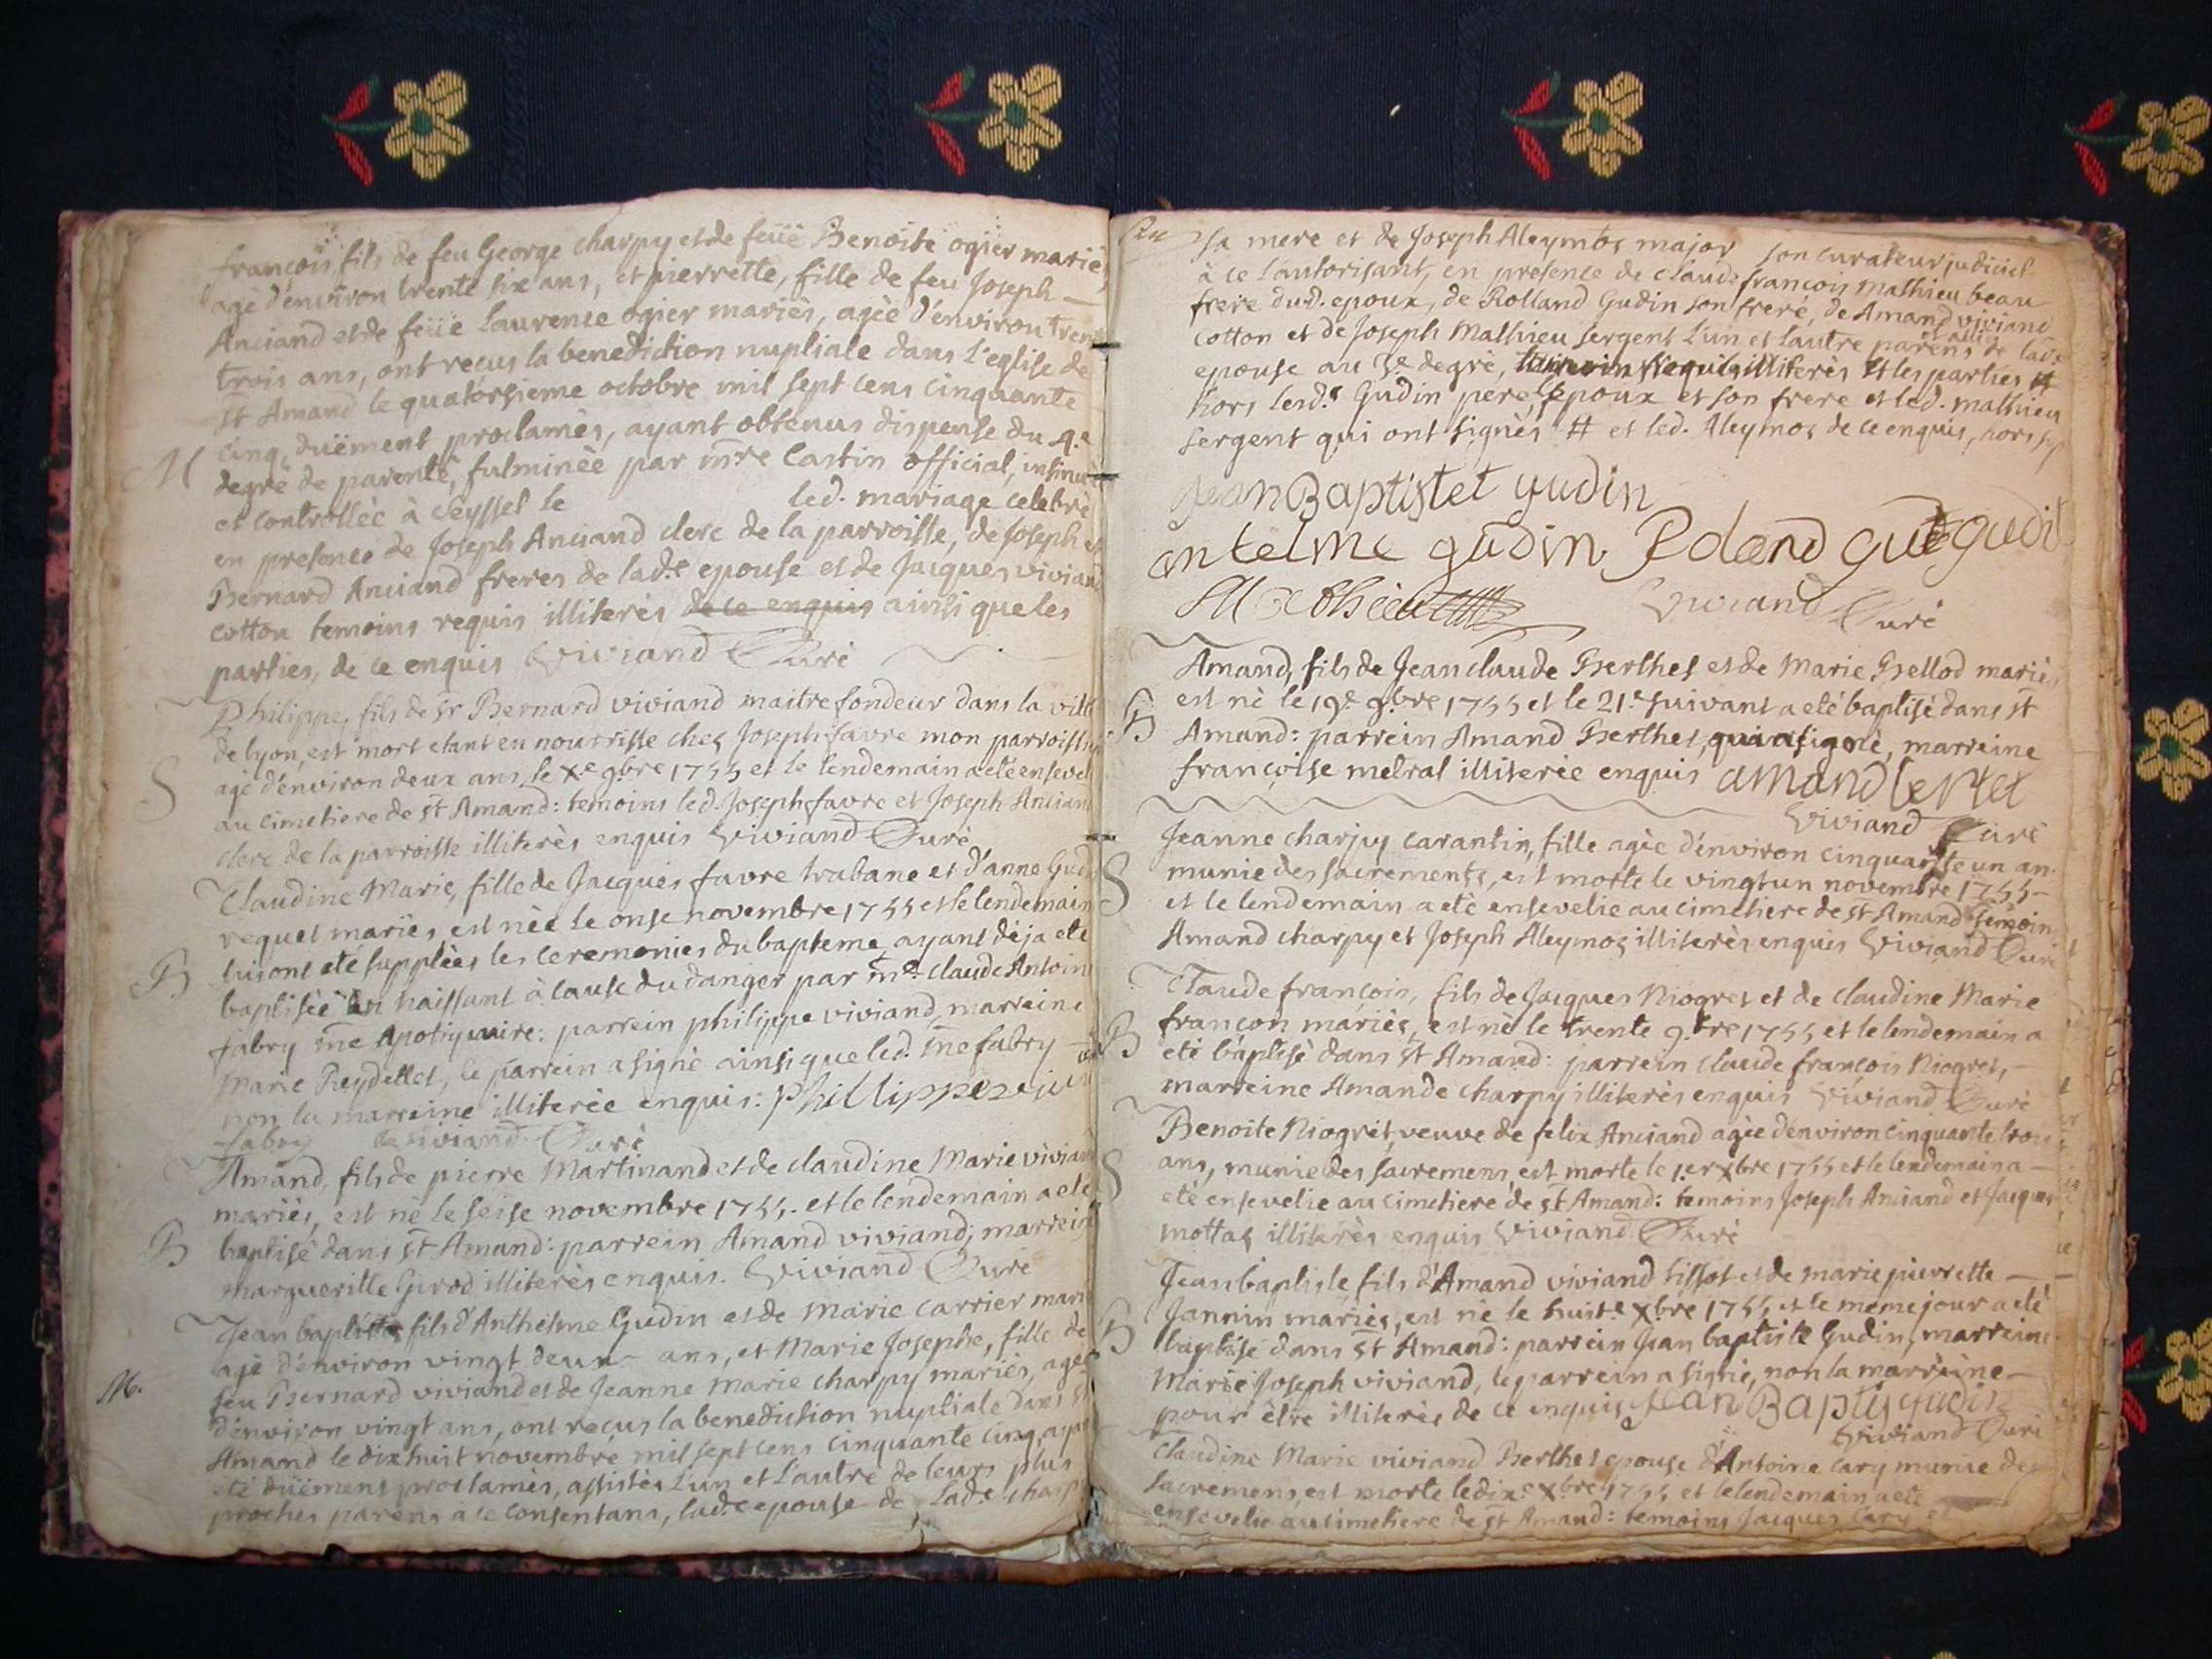 françois, fils de feu George charpy et de feüe Benoite ogier mariés,
agé d'environ trente six ans, et pierrette, fille de feu Joseph —
Anciand et de feüe Laurence ogier mariès, agèe d'environ trente
trois ans, ont reçus la benediction nuptiale dans l'eglise de
st Amand le quatorsieme octobre mil sept cens cinquante
cinq, duëment proclamès, ayant obtenus dispense du 4.e
M
degrè de parentè, fulminèe par mre Castin official, insinuée
et controllèe à Seyssel le led. mariage celebrè
en presence de Joseph Anciand clerc de la parroisse, de Joseph et
Bernard Anciand freres de lad.e epouse et de Jacques viviand
cotton temoins requis illiterès de ce enquis ainsi que les
parties, de ce enquis Viviand Curè
Philippe, fils de Sr Bernard viviand maitre fondeur dans la ville
de lyon, est mort etant en nourrisse chez Joseph favre mon parroissien
S
agè d'environ deux ans, le x.e 9.bre 1755 et le lendemain a eté enseveli
au cimetiere de st Amand: temoins led. Joseph favre et Joseph Anciand
clerc de la parroisse illiterès enquis Viviand Curè
Claudine Marie, fille de Jacques favre trabane et d'anne Gudin
requet mariès, est nèe le onse novembre 1755 et le lendemain
B
lui ont eté supplèes les ceremonies du bapteme ayant dèja eté
baptisèe en naissant à cause du danger par me. Claude Antoine
fabry me Apotiquaire: parrein philippe viviand, marreine
Marie Reydellet, le parrein a signè ainsi que led. me fabry —
non la marreine illiterèe enquis: Phillippe viviand
fabry Viviand Curè
Amand, fils de pierre Martinand et de claudine Marie viviand
mariès, est nè le seise novembre 1755. et le lendemain a eté
B
baptisè dans st Amand: parrein Amand viviand; marreine
marguerille Girod illiterès enquis. Viviand Curè
Jean baptiste fils d'Anthelme Gudin et de Marie carrier mariès
agè d'environ vingt deux ans, et Marie Josephe, fille de
M.
feu Bernard viviand et de Jeanne Marie charpy mariès, agèe
d'environ vingt ans, ont reçus la benediction nuptiale dans st
Amand le dix huit novembre mil sept cens cinquante cinq, ayant
eté duëmens proclamès, assistès l'un et l'autre de leurs plus
proches parens à ce consentans, lad.e epouse de lad.e charpy
sa mere et de Joseph Aleymoz major son curateur judiciel
à ce l'autorisant, en presence de claude françois mathieu beau
frere dud. epoux, de Rolland Gudin son frere, de Amand viviand
cotton et de Joseph Mathieu sergent l'un et l'autre parens de lad.e
epouse au 3.e degrè, illiterès et les parties #
hors lesd.s Gudin pere, epoux et son frere et led. mathieu
sergent qui ont signès # et led. Aleymoz de ce enquis, hors
jean Baptistet gudin
antelme gudin Roland gudin
Mathieu Viviand Curè
Amand, fils de Jean claude Berthet et de Marie Bellod mariès
est nè le 19.e 9.bre 1755 et le 21.e suivant a etè baptisè dans st
B
Amand: parrein Amand Berthet, qui a signè, marreine
françoise metral illiterèe enquis amand bertet
Viviand Curè
Jeanne charpy carantin, fille agèe d'environ cinquante un an
munie des sacrements, est morte le vingt un novembre 1755 —
S
et le lendemain a etè ensevelie au cimetiere de st Amand temoins
Amand charpy et Joseph Aleymoz illiterès enquis Viviand Curè
Claude françois, fils de Jacques Niogret et de claudine Marie
françon mariès, est nè le trente 9.bre 1755 et le lendemain a
B
etè baptisè dans st Amand: parrein claude françois Niogret, —
marreine Amande charpy illiterès enquis Viviand Curè
Benoite Niogret, veuve de felix Anciand agèe d'environ cinquante trois
S
ans, munie des sacremens, est morte le 1.er xbre 1755 et le lendemain a —
etè ensevelie au cimetiere de st Amand: temoins Joseph Anciand et Jacques
mottaz illiterès enquis Viviand Curè
Jean baptiste, fils d'Amand viviand tissot et de marie pierrette —
Jannin mariès, est nè le huit.e xbre 1755, et le meme jour a etè
B
baptisè dans st Amand: parrein Jean baptiste Gudin, marreine
Marie Joseph viviand, le parrein a signè, non la marrèine —
pour être illiterès de ce enquis jean Baptis gudin
Viviand Curè
Claudine Marie viviand Berthet epouse d'Antoine Cary munie des
sacremens, est morte le dix.e xbre 1755 et le lendemain a etè
ensevelie au cimetiere de st Amand: temoins Jacques Cary et